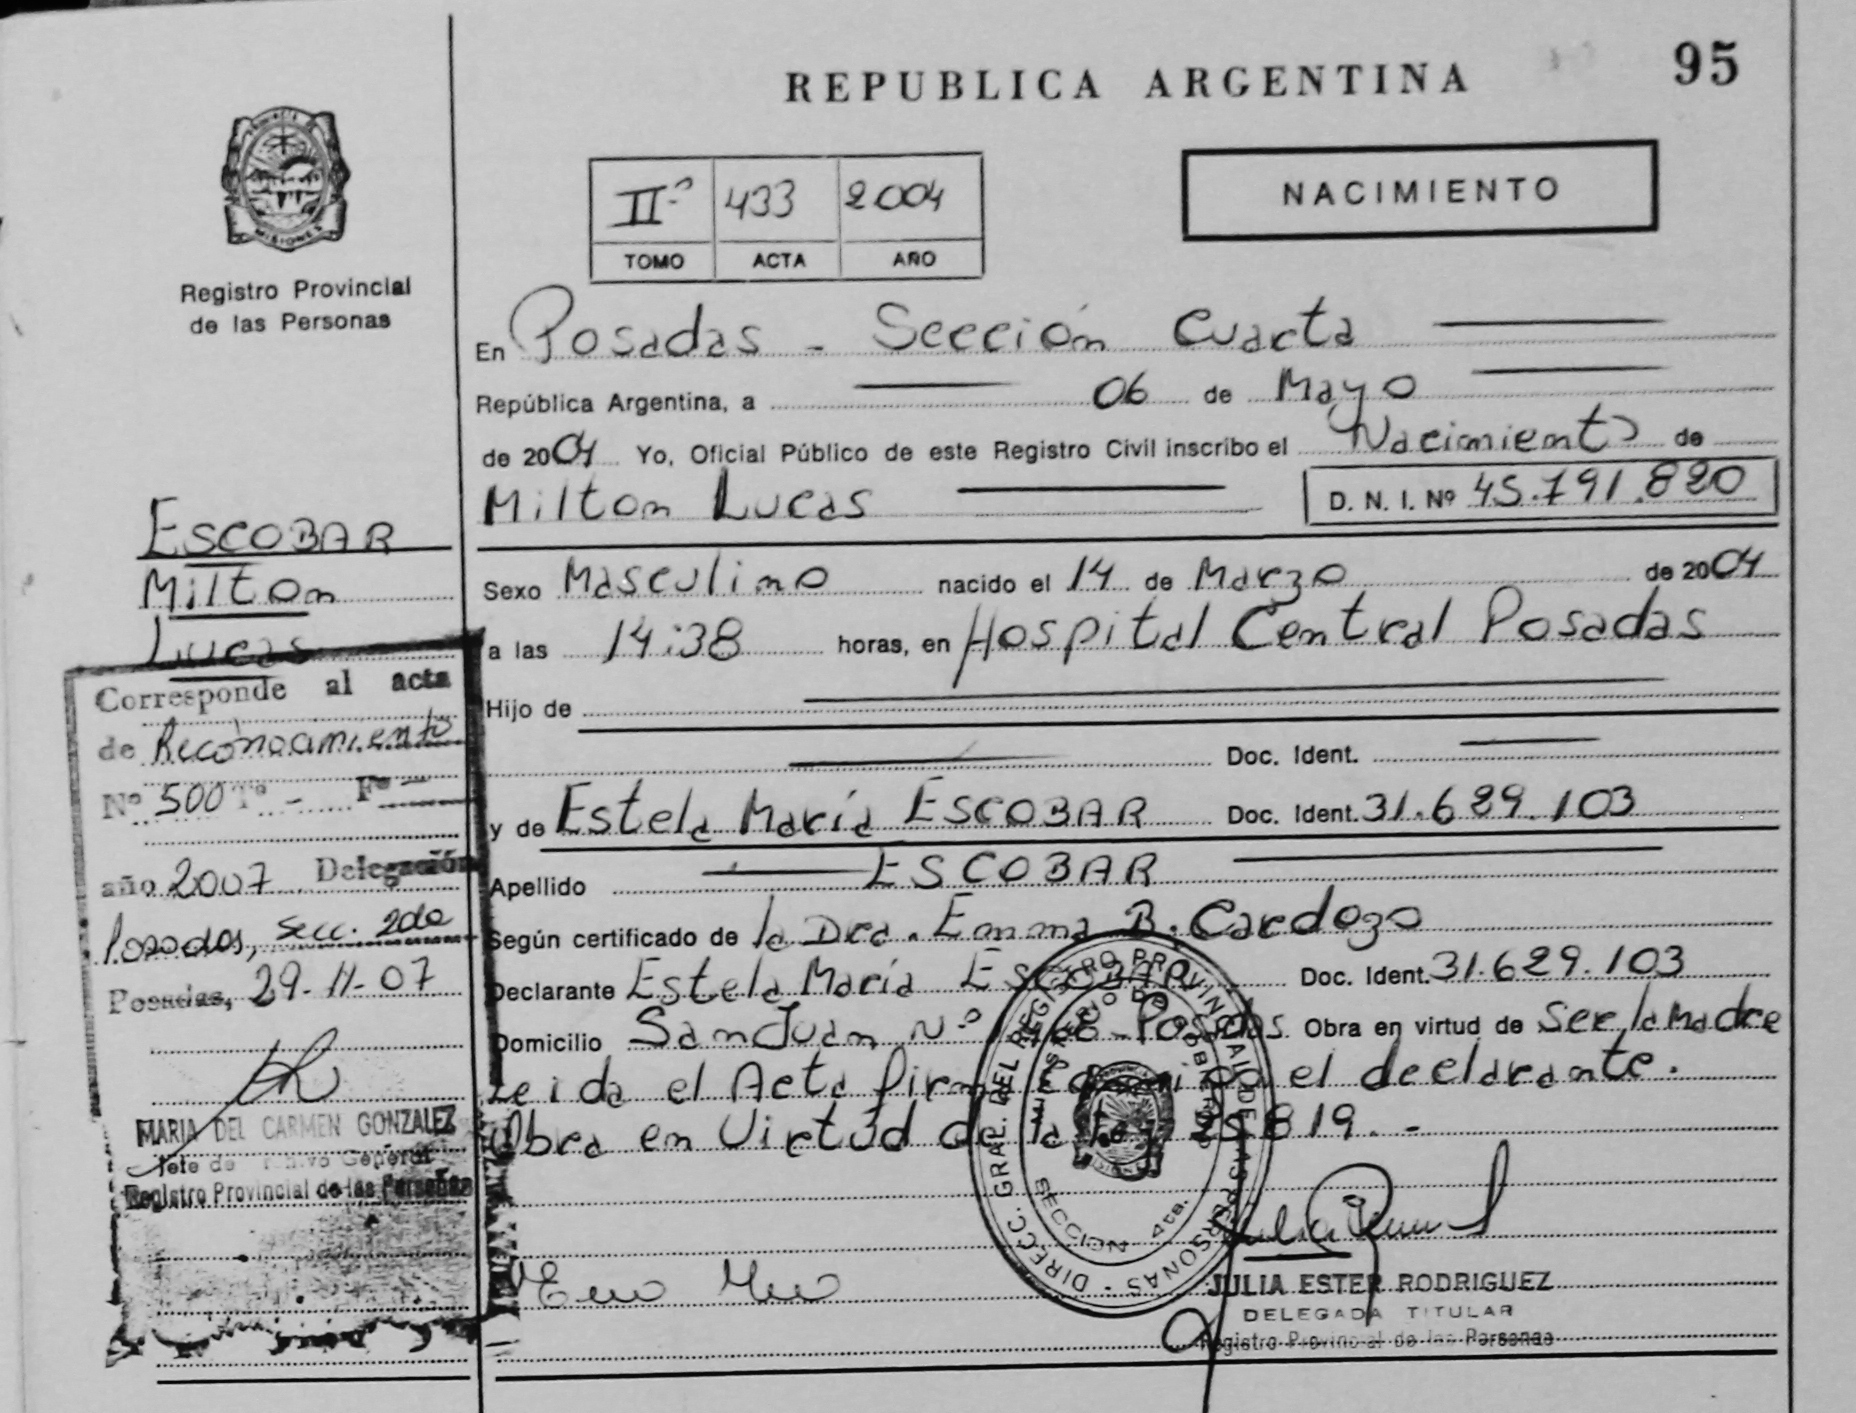 95
REPUBLICA ARGENTINA
MISIONES
Registro Provincial
de las Personas
IIº 433 2004
TOMO ACTA AÑO
NACIMIENTO
En Posadas - Sección Cuarta
República Argentina, a 06 de Mayo
de 2004 Yo, Oficial Público de este Registro Civil inscribo el Nacimiento de
Milton Lucas D. N. I. Nº 45.791.820
ESCOBAR
Milton
Lucas
Sexo Masculino nacido el 14 de Marzo de 2004
a las 14:38 horas, en Hospital Central Posadas
Hijo de
Doc. Ident.
y de Estela María ESCOBAR Doc. Ident. 31.629.103
Apellido ESCOBAR
Según certificado de la Dra. Emma B. Cardozo
Declarante Estela María ESCOBAR Doc. Ident. 31.629.103
Domicilio San Juan Nº Posadas Obra en virtud de Ser la Madre
Leida el Acta el declarante.
Obra en Virtud de la Ley 25.819.-
Corresponde al acta
de Reconocimiento
Nº 500 Tº - Fº -
año 2007 Delegación
Posadas, Secc. 2da
Posadas, 29-11-07
MARIA DEL CARMEN GONZALEZ
Jefe de General
Registro Provincial de las Personas
DIREC. GRAL. DEL REGISTRO PROVINCIAL DE LAS PERSONAS
MINISTERIO DE GOBIERNO
SECCION 4ta.
JULIA ESTER RODRIGUEZ
DELEGADA TITULAR
Registro Provincial de las Personas